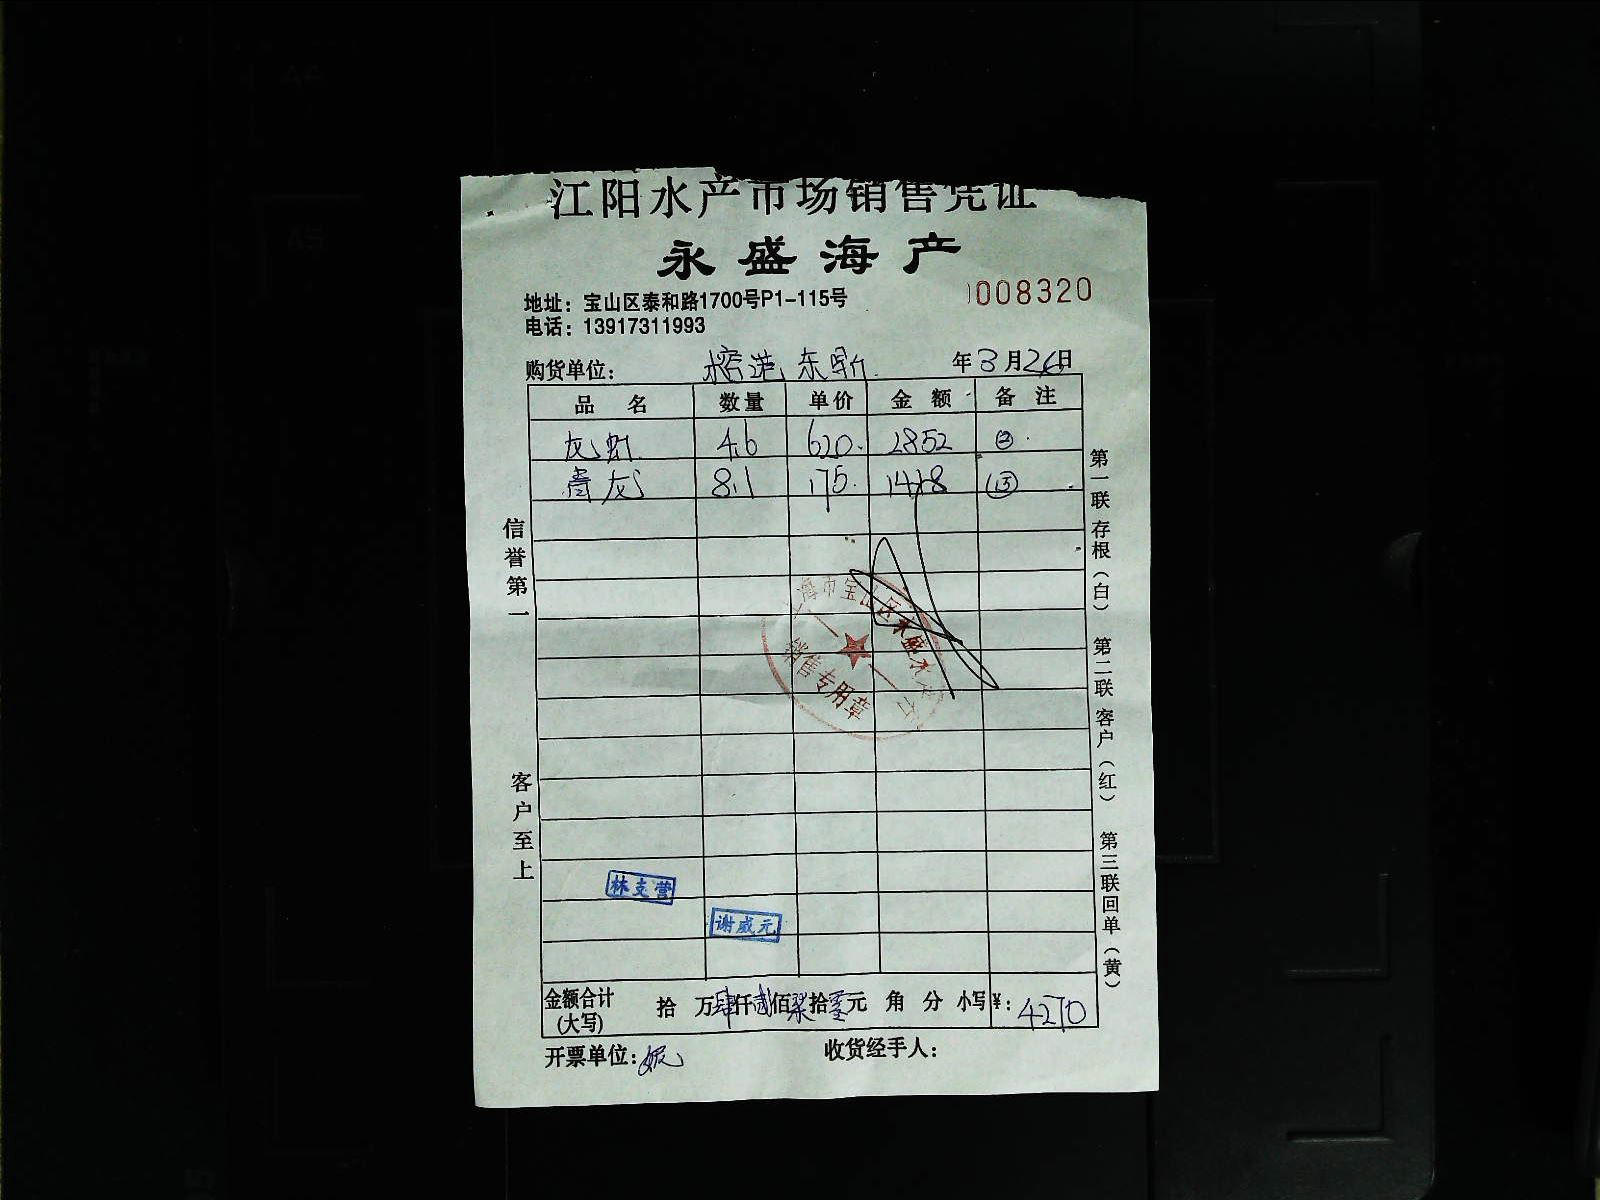 江阳水产市场销售凭证
永盛海产
地址：宝山区泰和路1700号P1-115号
008320
电话：13917311993
购货单位： 榕港东鼎 年3月26日
品名 数量 单价 金额 备注
龙虾 4.6 620. 2852 ②
青龙 8.1 175. 1418 ⑬
信誉第一
客户至上
第一联存根（白） 第二联客户（红） 第三联回单（黄）
海市宝山区永盛水
销售专用章
林支营
谢威元
金额合计(大写) 拾 万肆仟贰佰柒拾零元 角 分 小写¥：4270
开票单位：妮
收货经手人：